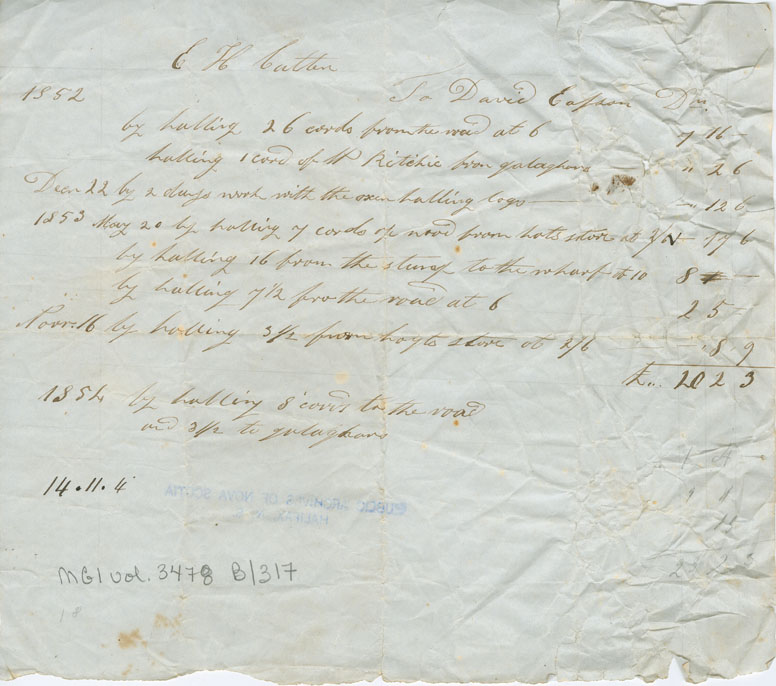 E H Cutten
1852 To David Eason Dr.
by halling 26 cords from the road at 6 7 16 -
halling 1 cord of Mr Ritchie from galaghars " 2 6
Decr 22 by 2 days work with the oxen halling logs " 12 6
1853 May 20 by halling 7 cords of wood from hots store at 2/6 - 17 6
by halling 16 from the stump to the wharf at 10 8 -
by halling 7 1/2 fro the road at 6 2 5 -
Novr 16 by halling 3 1/2 from hoyts store at 2/6 " 8 9
£.. 20 2 3
1854 by halling 8 cords to the road
and 3 1/2 to galaghars
14.11.4
PUBLIC ARCHIVES OF NOVA SCOTIA
HALIFAX, N. S.
MG1 vol. 3478 B/317
18